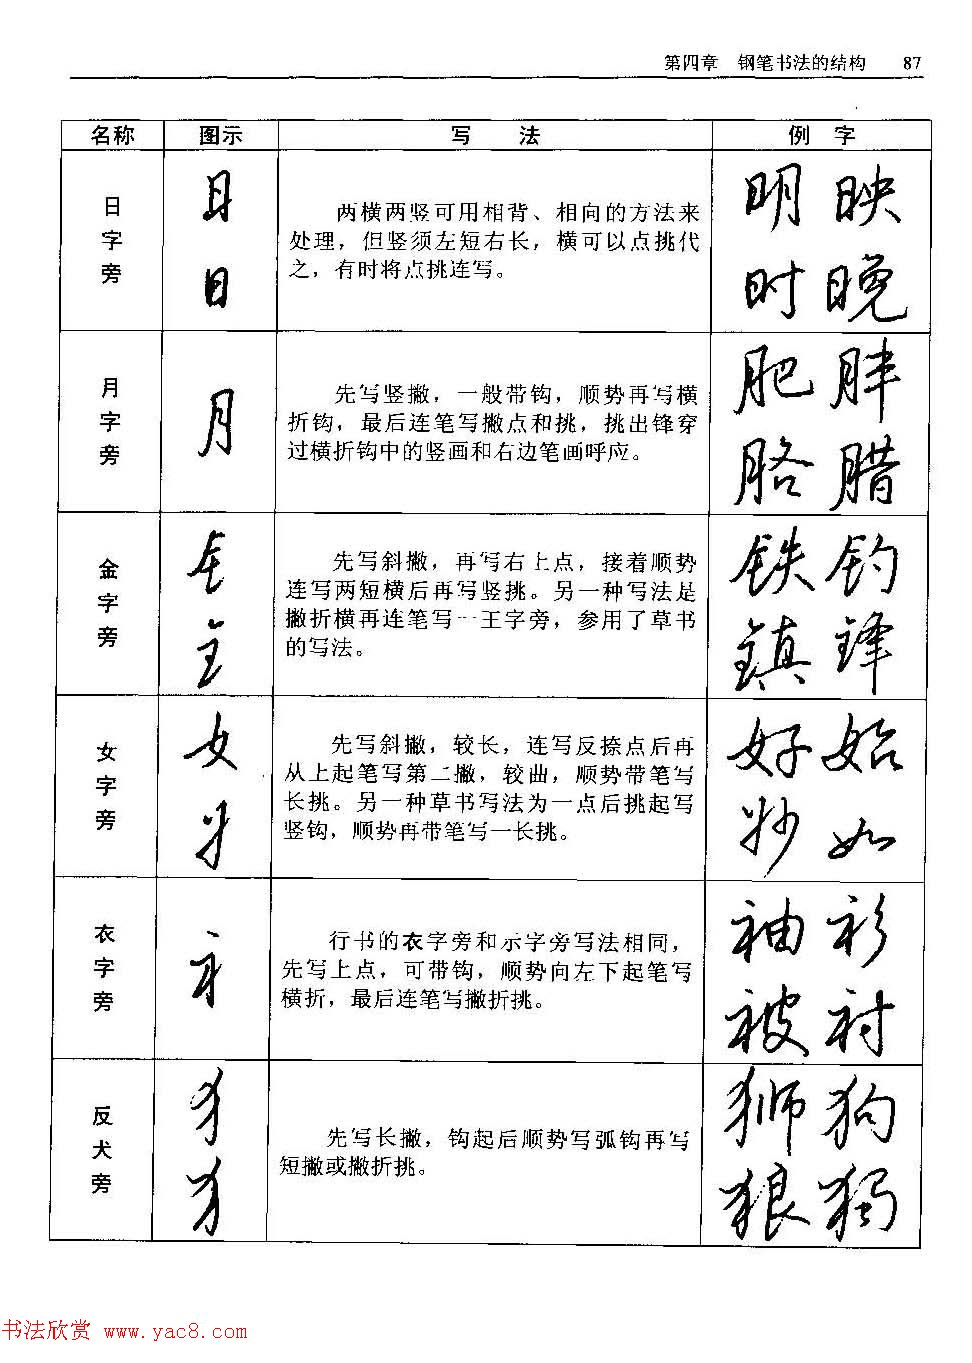 第四章 钢笔书法的结构 87
名称 图示 写 法 例 字
日字旁
两横两竖可用相背、相向的方法来
处理，但竖须左短右长，横可以点挑代
之，有时将点挑连写。
明 映
时 晚
月字旁
先写竖撇，一般带钩，顺势再写横
折钩，最后连笔写撇点和挑，挑出锋穿
过横折钩中的竖画和右边笔画呼应。
肥 胖
胳 腊
金字旁
先写斜撇，再写右上点，接着顺势
连写两短横后再写竖挑。另一种写法是
撇折横再连笔写一王字旁，参用了草书
的写法。
铁 钓
镇 锋
女字旁
女
先写斜撇，较长，连写反捺点后再
从上起笔写第二撇，较曲，顺势带笔写
长挑。另一种草书写法为一点后挑起写
竖钩，顺势再带笔写一长挑。
好 始
妙 如
衣字旁
行书的衣字旁和示字旁写法相同，
先写上点，可带钩，顺势向左下起笔写
横折，最后连笔写撇折挑。
袖 衫
被 衬
反犬旁
先写长撇，钩起后顺势写弧钩再写
短撇或撇折挑。
狮 狗
狼 独
书法欣赏 www.yac8.com